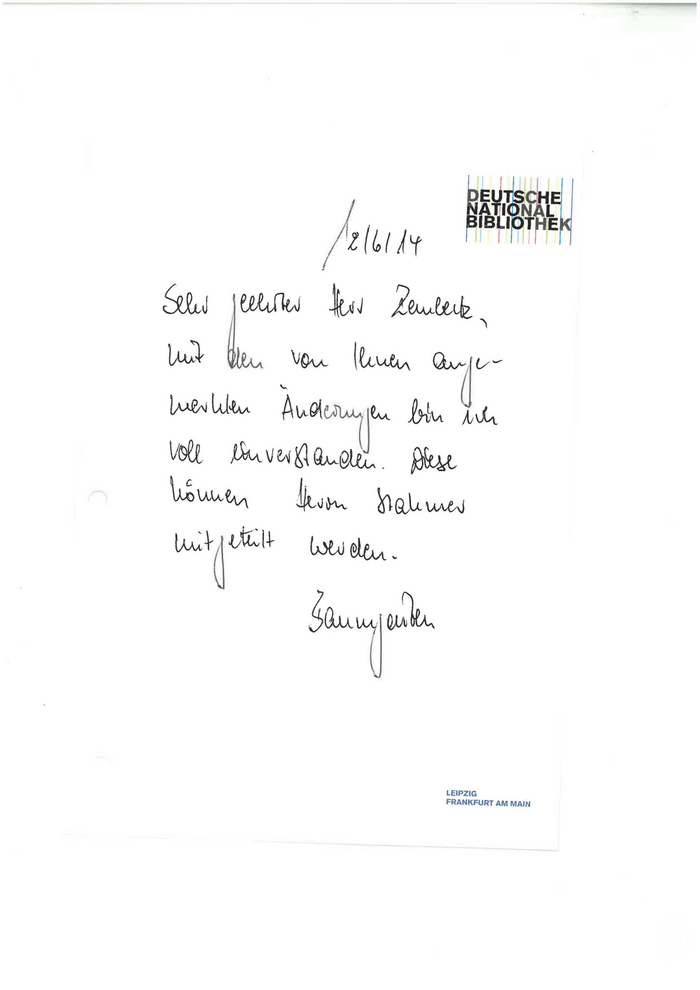 DEUTSCHE
NATIONAL
BIBLIOTHEK
2/6/14
Sehr geehrter Herr
mit den von Ihnen ange-
merkten Änderungen bin ich
voll einverstanden. Diese
können Herrn Stahmer
mitgeteilt werden.
Baumgarten
LEIPZIG
FRANKFURT AM MAIN